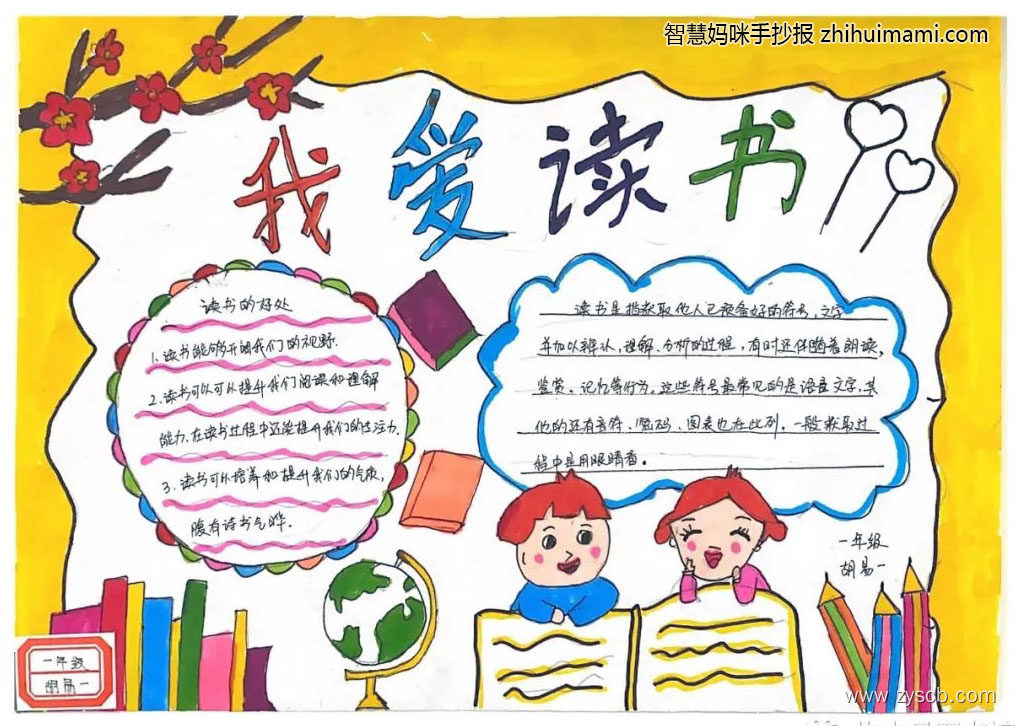 智慧妈咪手抄报 zhihuimami.com
我爱读书
读书的好处
1.读书能够开阔我们的视野.
2.读书可以可以提升我们阅读和理解
能力.在读书过程中还能提升我们的专注力.
3.读书可以培养和提升我们的气质,
腹有诗书气晔.
读书是指获取他人已预备好的符号,文字
并加以辨认,理解、分析的过程,有时还伴随着朗读,
鉴赏、记忆等行为。这些符号最常见的是语言文字,其
他的还有音符、密码、图表也在此列。一般获取过
程中是用眼睛看。
一年级
胡易一
一年级
胡易一
www.zyscb.com